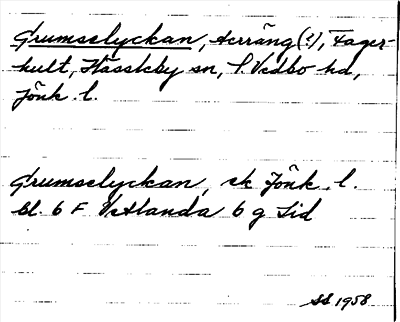 Grumselyckan, terräng(?), Fager-
hult, Hässleby sn, S. Vedbo hd,
Jönk. l.
Grumselyckan, ek Jönk. l.
bl. 6 F Vetlanda 6 g Sid
SS 1958